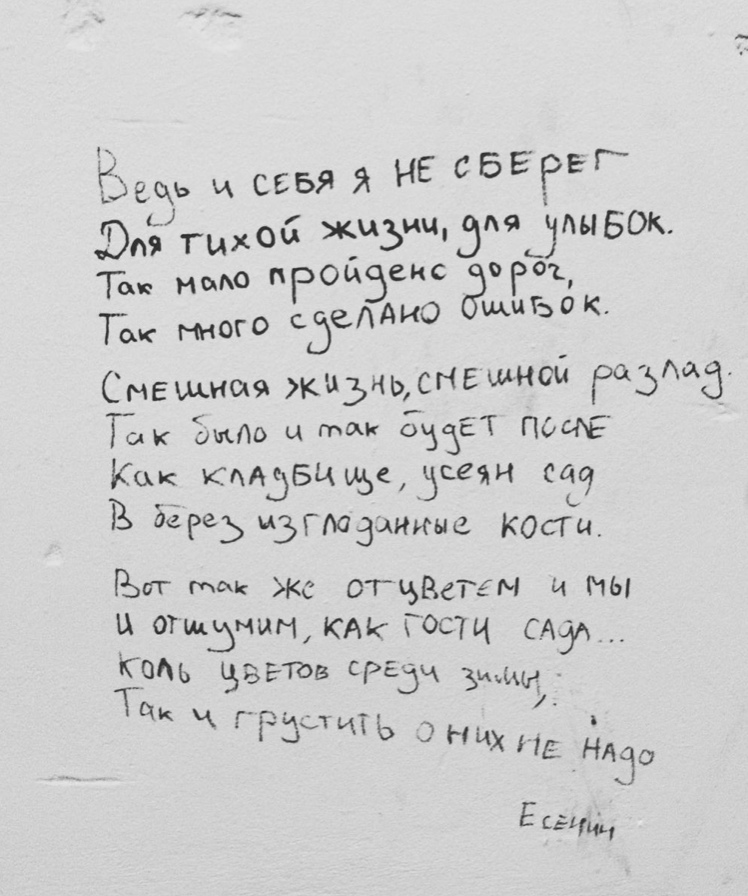 Ведь и себя я не сберег
Для тихой жизни, для улыбок.
Так мало пройдено дорог,
Так много сделано ошибок.
Смешная жизнь, смешной разлад.
Так было и так будет после
Как кладбище, усеян сад
В берез изглоданные кости.
Вот так же отцветем и мы
И отшумим, как гости сада...
Коль цветов среди зимы,
Так и грустить о них не надо
Есенин